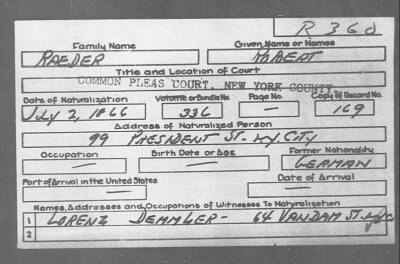 R 360
Family Name Given Name or Names
RAEDER ROBERT
Title and Location of Court
COMMON PLEAS COURT, NEW YORK COUNTY
Date of Naturalization Volume or Bundle No. Page No. Copy of Record No.
July 2, 1866 336 — 169
Address of Naturalized Person
99 PRESIDENT ST. N.Y. CITY
Occupation Birth Date or Age Former Nationality
— — GERMAN
Port of Arrival in the United States Date of Arrival
— —
Names, Addresses and Occupations of Witnesses To Naturalization
1 LORENZ DEMMLER - 64 VANDAM ST. NYC
2